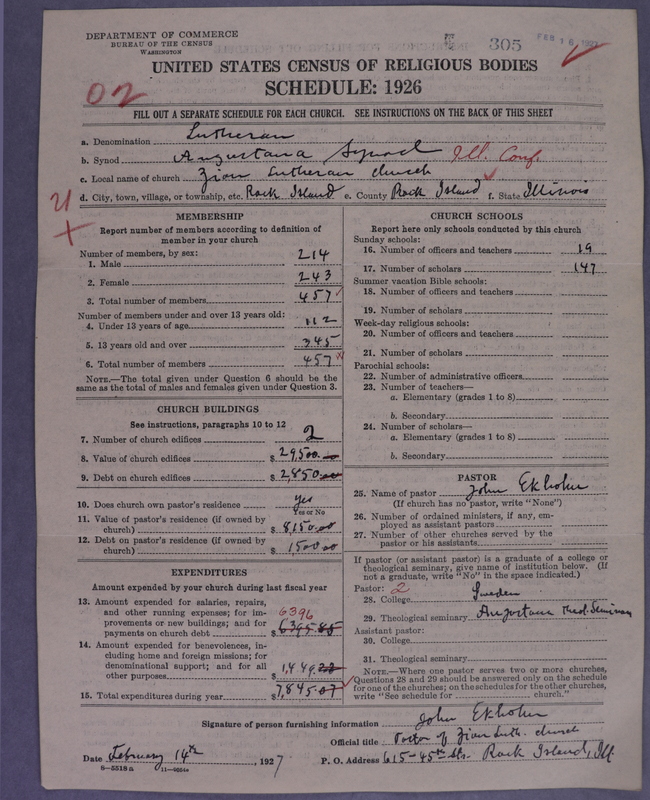 DEPARTMENT OF COMMERCE
BUREAU OF THE CENSUS
WASHINGTON
305
FEB 16 1927
UNITED STATES CENSUS OF RELIGIOUS BODIES
SCHEDULE: 1926
02
FILL OUT A SEPARATE SCHEDULE FOR EACH CHURCH. SEE INSTRUCTIONS ON THE BACK OF THIS SHEET
a. Denomination Lutheran
b. Synod Augustana Synod Ill. Conf.
c. Local name of church Zion Lutheran Church
d. City, town, village, or township, etc. Rock Island e. County Rock Island f. State Illinois
MEMBERSHIP
Report number of members according to definition of
member in your church
Number of members, by sex:
1. Male 214
2. Female 243
3. Total number of members 457
Number of members under and over 13 years old:
4. Under 13 years of age 112
5. 13 years old and over 345
6. Total number of members 457
NOTE.—The total given under Question 6 should be the
same as the total of males and females given under Question 3.
CHURCH BUILDINGS
See instructions, paragraphs 10 to 12
7. Number of church edifices 2
8. Value of church edifices $29,500
9. Debt on church edifices $2,850
10. Does church own pastor's residence yes
Yes or No
11. Value of pastor's residence (if owned by
church) $8,150.00
12. Debt on pastor's residence (if owned by
church) $1500.00
EXPENDITURES
Amount expended by your church during last fiscal year
13. Amount expended for salaries, repairs,
and other running expenses; for im-
provements or new buildings; and for
payments on church debt 6396 $6395.85
14. Amount expended for benevolences, in-
cluding home and foreign missions; for
denominational support; and for all
other purposes $1,449.22
15. Total expenditures during year $7,845.07
CHURCH SCHOOLS
Report here only schools conducted by this church
Sunday schools:
16. Number of officers and teachers 19
17. Number of scholars 147
Summer vacation Bible schools:
18. Number of officers and teachers
19. Number of scholars
Week-day religious schools:
20. Number of officers and teachers
21. Number of scholars
Parochial schools:
22. Number of administrative officers
23. Number of teachers—
a. Elementary (grades 1 to 8)
b. Secondary
24. Number of scholars—
a. Elementary (grades 1 to 8)
b. Secondary
PASTOR
25. Name of pastor John Ekholm
(If church has no pastor, write "None")
26. Number of ordained ministers, if any, em-
ployed as assistant pastors
27. Number of other churches served by the
pastor or his assistants
If pastor (or assistant pastor) is a graduate of a college or
theological seminary, give name of institution below. (If
not a graduate, write "No" in the space indicated.)
Pastor: 2
28. College Sweden
29. Theological seminary Augustana Theol. Seminary
Assistant pastor:
30. College
31. Theological seminary
NOTE.—Where one pastor serves two or more churches,
Questions 28 and 29 should be answered only on the schedule
for one of the churches; on the schedules for the other churches,
write "See schedule for church."
Signature of person furnishing information John Ekholm
Official title Pastor of Zion Luth. Church
Date February 14th, 1927 P. O. Address 615-45th St. Rock Island, Ill
6-5518a 11-9604a